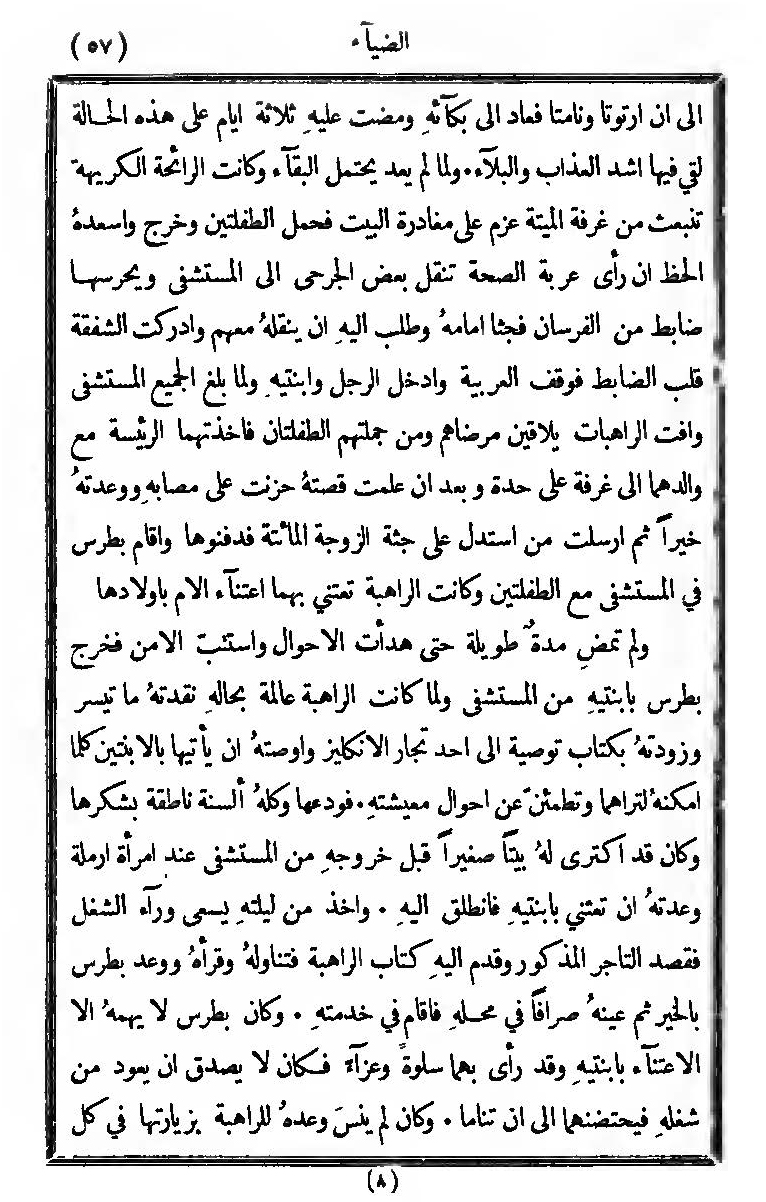 الضيآء (٥٧)
الى ان ارتوتا ونامتا فعاد الى بكآئهِ ومضت عليهِ ثلاثة ايام على هذه الحالة
لقي فيها اشد العذاب والبلآء. ولما لم يعد يحتمل البقآء وكانت الرائحة الكريهة
تنبعث من غرفة الميتة عزم على مغادرة البيت فحمل الطفلتين وخرج واسعدهُ
الحظ ان رأى عربة الصحة تنقل بعض الجرحى الى المستشفى ويحرسها
ضابط من الفرسان فجثا امامهُ وطلب اليهِ ان ينقلهُ معهم وادركت الشفقة
قلب الضابط فوقف العربية وادخل الرجل وابنتيهِ ولما بلغ الجميع المستشفى
وافت الراهبات يلاقين مرضاهم ومن جملتهم الطفلتان فاخذتهما الرئيسة مع
والدهما الى غرفة على حدة وبعد ان علمت قصتهُ حزنت على مصابهِ ووعدتهُ
خيراً ثم ارسلت من استدل على جثة الزوجة المائتة فدفنوها واقام بطرس
في المستشفى مع الطفلتين وكانت الراهبة تعتني بهما اعتنآء الام باولادها
ولم تمضِ مدةٌ طويلة حتى هدأت الاحوال واستتبّ الامن فخرج
بطرس بابنتيهِ من المستشفى ولما كانت الراهبة عالمة بحالهِ نقدتهُ ما تيسر
وزودتهُ بكتاب توصية الى احد تجار الانكليز واوصتهُ ان يأتيها بالابنتين كلما
امكنهُ لتراهما وتطمئنّ عن احوال معيشتهِ. فودعها وكلهُ ألسنة ناطقة بشكرها
وكان قد اكترى لهُ بيتاً صغيراً قبل خروجهِ من المستشفى عند امرأة ارملة
وعدتهُ ان تعتني بابنتيهِ فانطلق اليهِ. واخذ من ليلتهِ يسعى ورآء الشغل
فقصد التاجر المذكور وقدم اليهِ كتاب الراهبة فتناولهُ وقرأهُ ووعد بطرس
بالخير ثم عينهُ صرافاً في محلهِ فاقام في خدمتهِ. وكان بطرس لا يهمهُ الا
الاعتنآء بابنتيهِ وقد رأى بهما سلوةً وعزآءً فكان لا يصدق ان يعود من
شغلهِ فيحتضنهما الى ان تناما. وكان لم ينسَ وعدهُ للراهبة بزيارتها في كل
(٨)